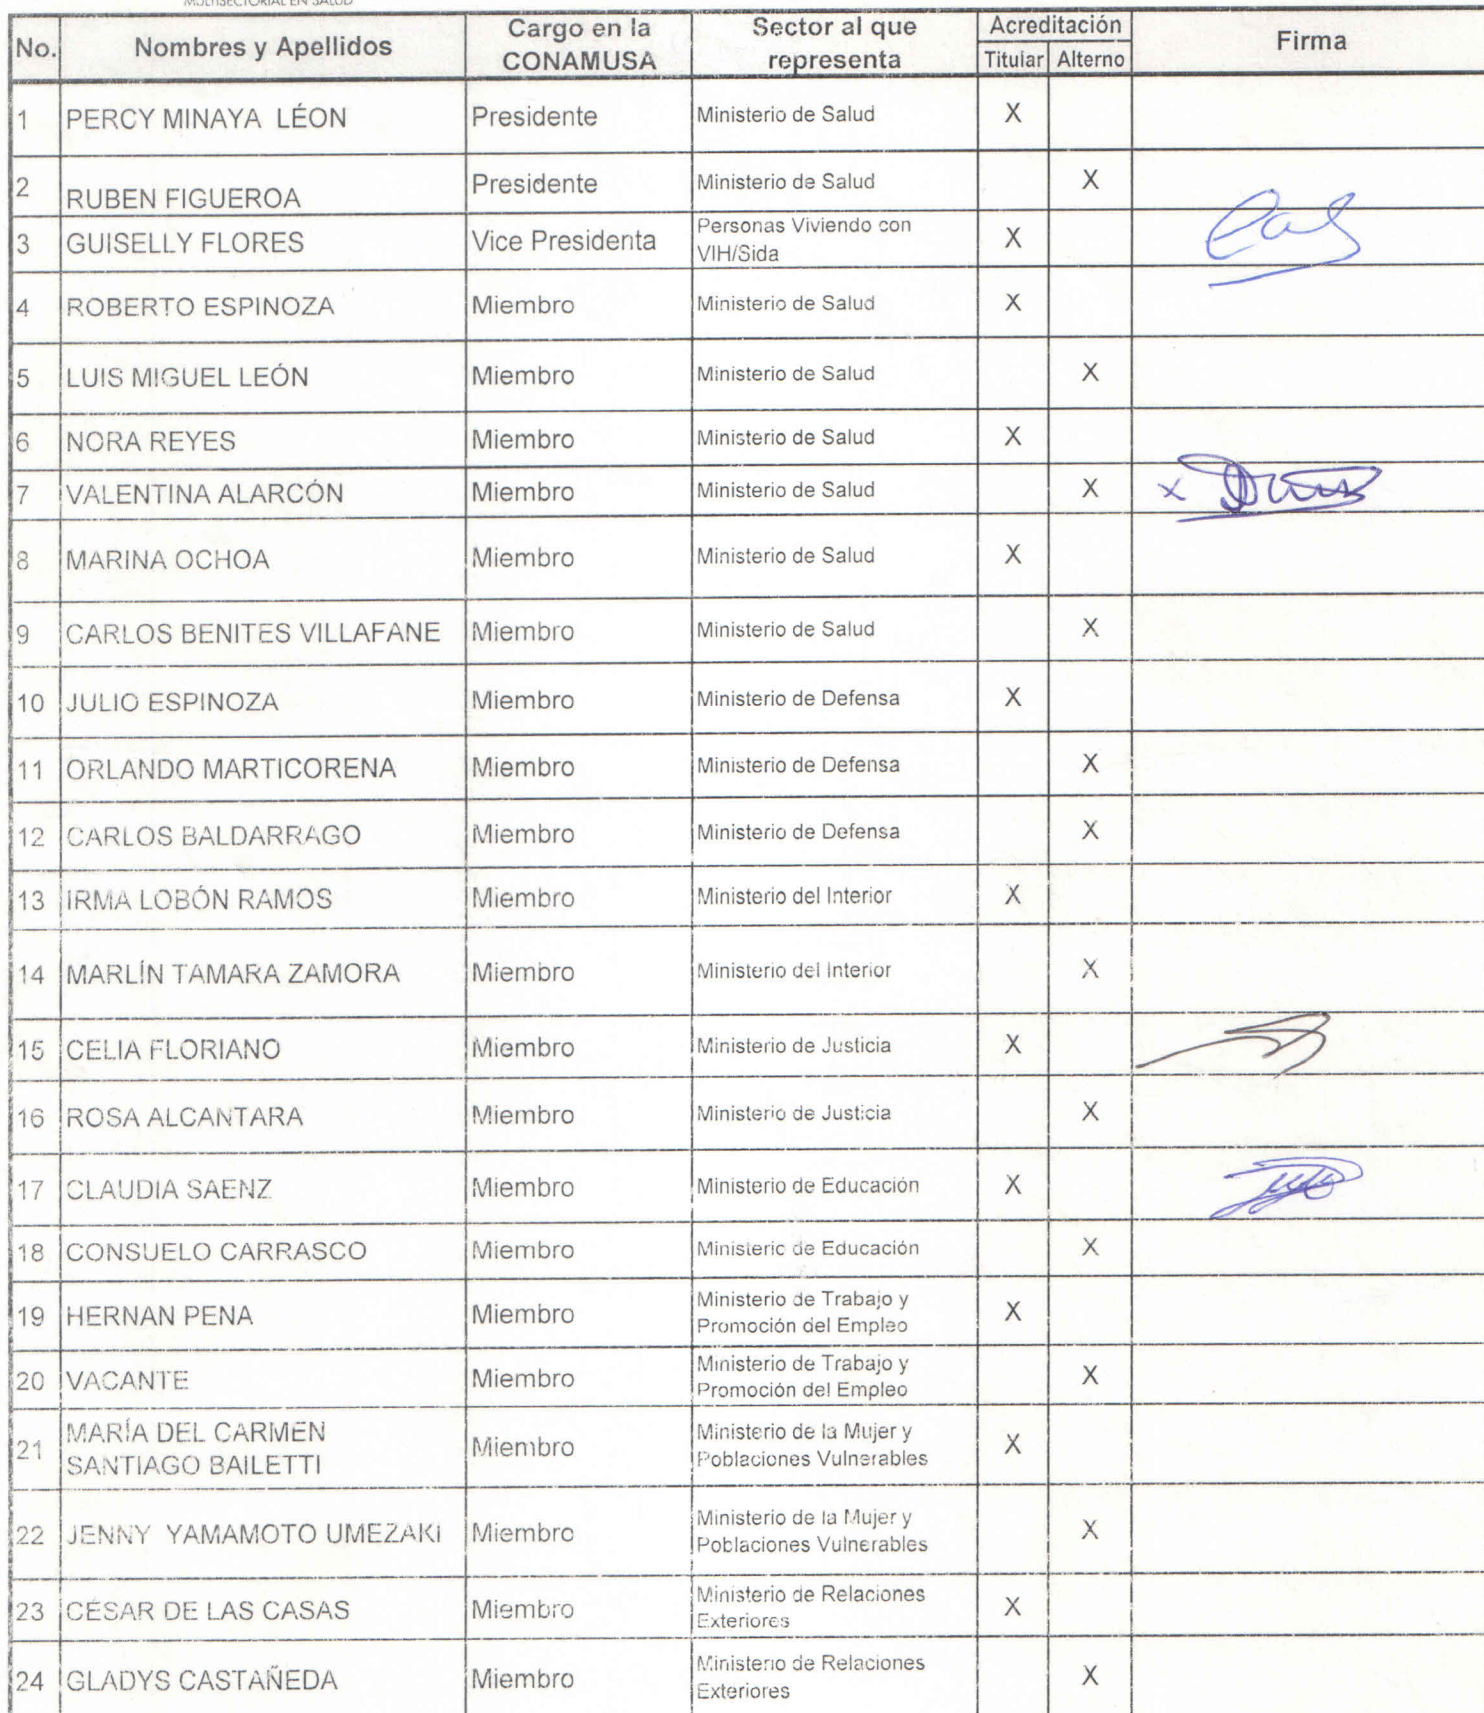 MULTISECTORIAL EN SALUD
No. Nombres y Apellidos Cargo en la CONAMUSA Sector al que representa Acreditación Titular Alterno Firma
1 PERCY MINAYA LÉON Presidente Ministerio de Salud X
2 RUBEN FIGUEROA Presidente Ministerio de Salud X
3 GUISELLY FLORES Vice Presidenta Personas Viviendo con VIH/Sida X
4 ROBERTO ESPINOZA Miembro Ministerio de Salud X
5 LUIS MIGUEL LEÓN Miembro Ministerio de Salud X
6 NORA REYES Miembro Ministerio de Salud X
7 VALENTINA ALARCÓN Miembro Ministerio de Salud X x
8 MARINA OCHOA Miembro Ministerio de Salud X
9 CARLOS BENITES VILLAFANE Miembro Ministerio de Salud X
10 JULIO ESPINOZA Miembro Ministerio de Defensa X
11 ORLANDO MARTICORENA Miembro Ministerio de Defensa X
12 CARLOS BALDARRAGO Miembro Ministerio de Defensa X
13 IRMA LOBÓN RAMOS Miembro Ministerio del Interior X
14 MARLÍN TAMARA ZAMORA Miembro Ministerio del Interior X
15 CELIA FLORIANO Miembro Ministerio de Justicia X
16 ROSA ALCANTARA Miembro Ministerio de Justicia X
17 CLAUDIA SAENZ Miembro Ministerio de Educación X
18 CONSUELO CARRASCO Miembro Ministerio de Educación X
19 HERNAN PENA Miembro Ministerio de Trabajo y Promoción del Empleo X
20 VACANTE Miembro Ministerio de Trabajo y Promoción del Empleo X
21 MARÍA DEL CARMEN SANTIAGO BAILETTI Miembro Ministerio de la Mujer y Poblaciones Vulnerables X
22 JENNY YAMAMOTO UMEZAKI Miembro Ministerio de la Mujer y Poblaciones Vulnerables X
23 CÉSAR DE LAS CASAS Miembro Ministerio de Relaciones Exteriores X
24 GLADYS CASTAÑEDA Miembro Ministerio de Relaciones Exteriores X